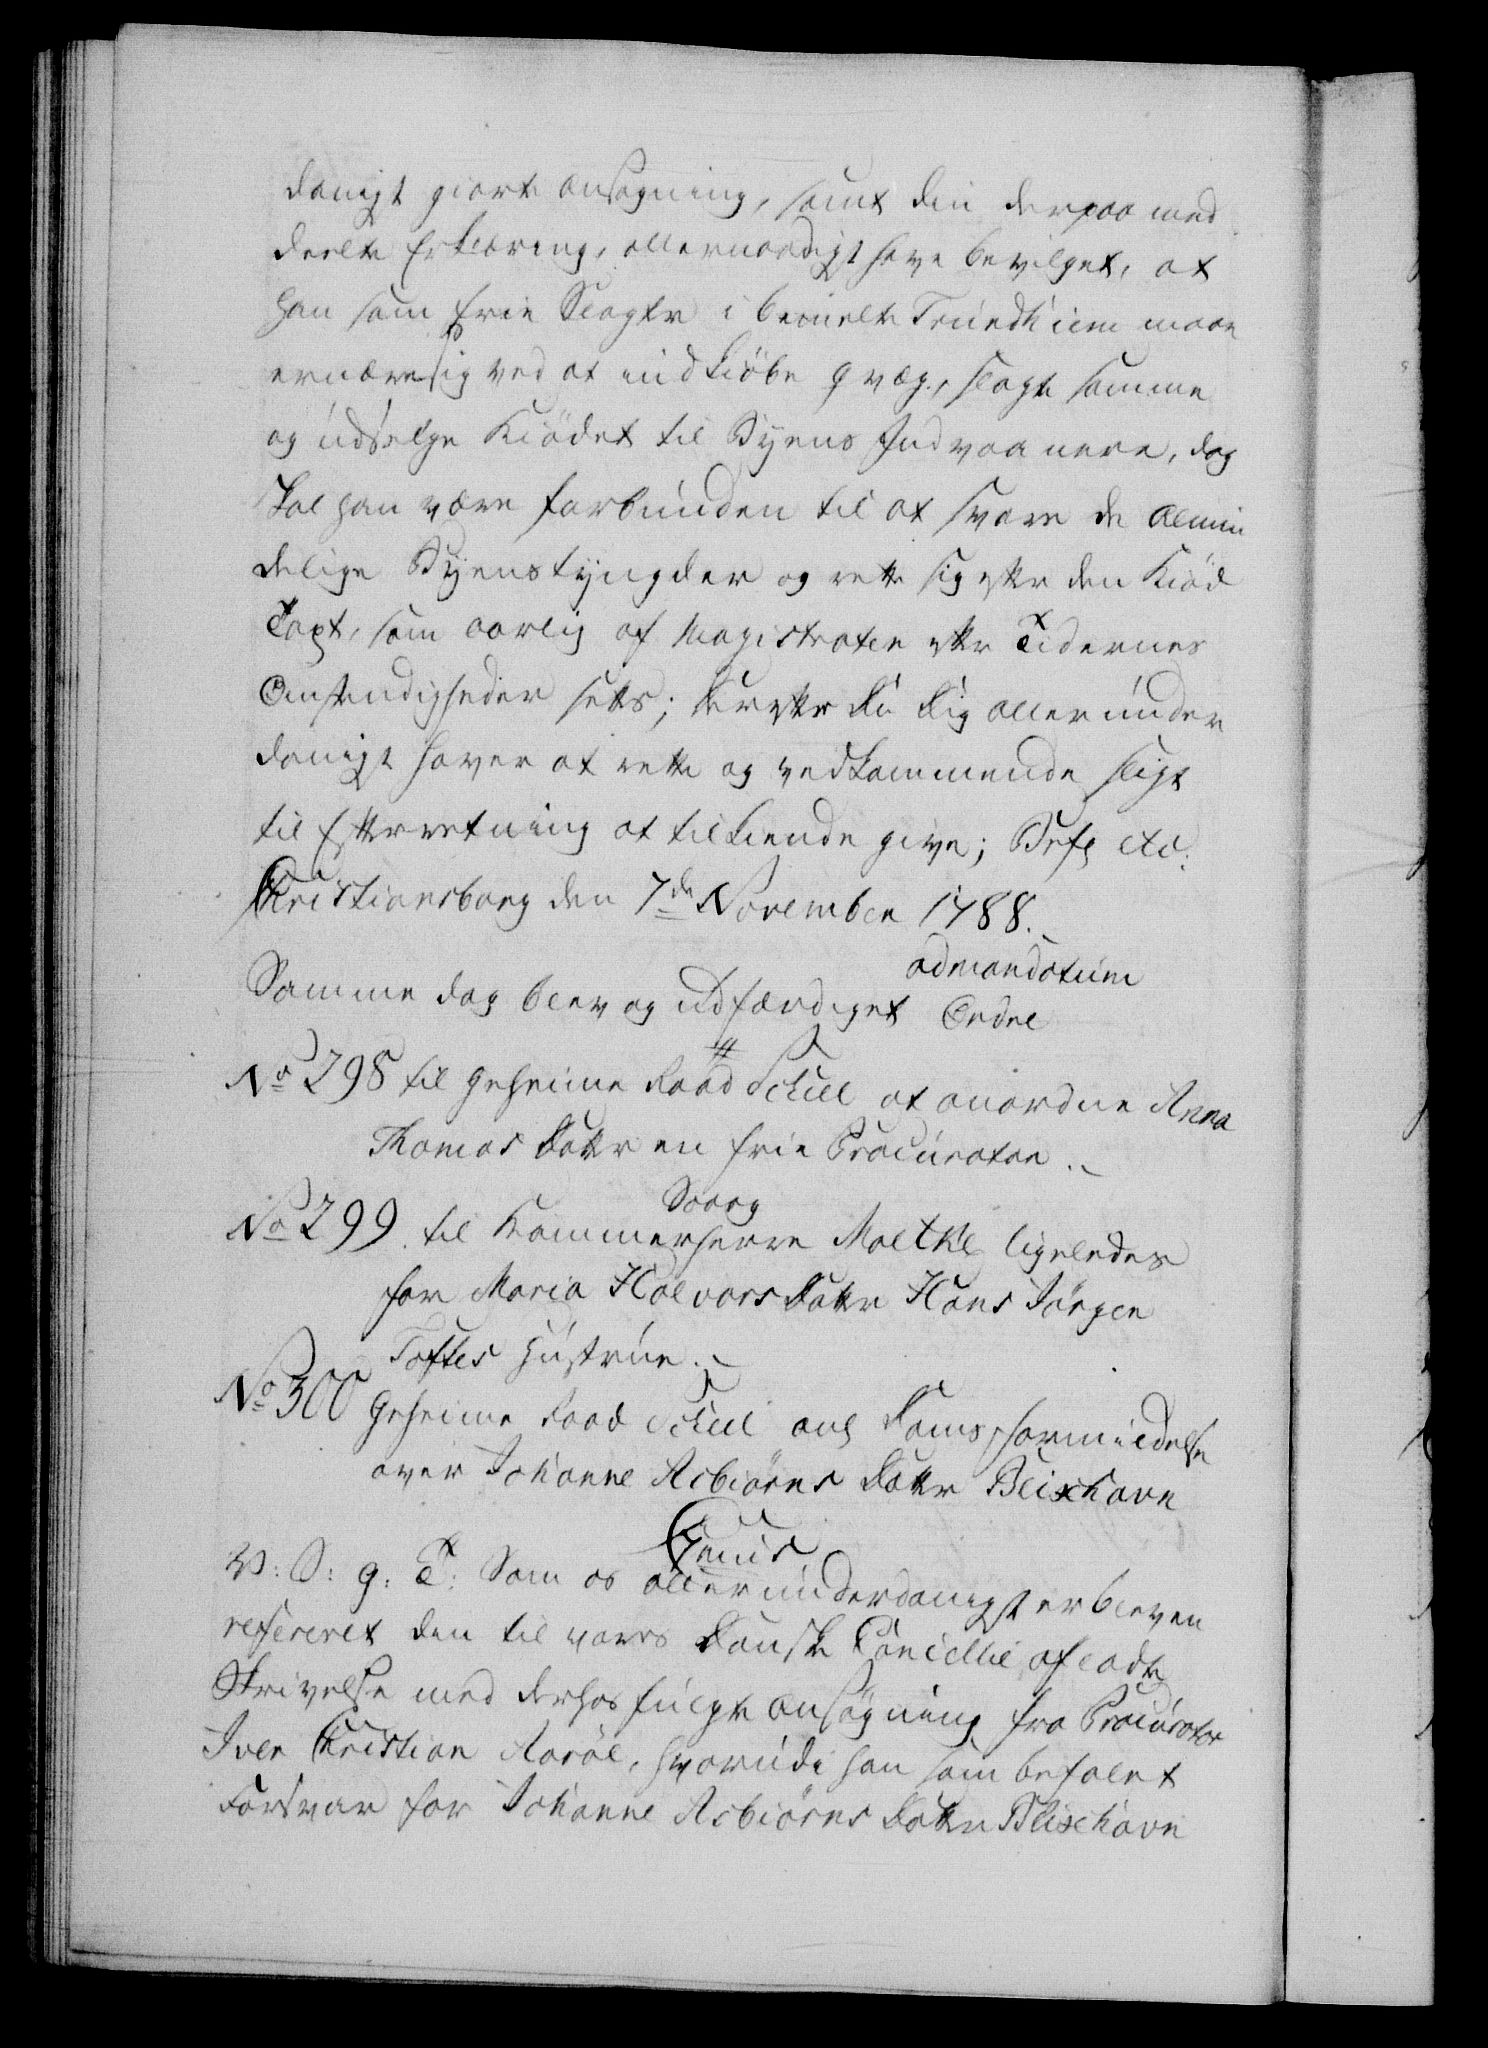 danigt giorte Ansøgning, samt den derpaa med
deelte Erklæring, allernaadigst have bevilget, at
han som frie Slagter i bemelte Trundhiem maae
ernære sig ved at indkiøbe qvæg, slagte samme
og udselge Kiødet til Byens Indvaanere, dog
skal han være forbunden til at svare de Almin
delige Byens tyngder og rette sig efter den Kiød
Taxt, som aarlig af Magistraten efter Tidernes
Omstændigheder settes; derefter Du Dig allerunder
danigst haver at rette og vedkommende sligt
til Efterretning at tilkiende give; Befl etc:
Christiansborg den 7de November 1788.
Samme dag blev og udfærdiget admandatum Ordre
No 298 til Geheime Raad Schul at anordne Anna
Thomas Datter en frie Procurator.
No 299. til Kammerherre Moltke ligeledes
for Maria Halvors Datter Hans Jörgen
Toftes Hustrue.
No 300 Geheime Raad Schul anl Doms formildelse
over Johanne Asbiörns Datter Blixhavn
V: S: G: T: Som os allerunderdanigst er bleven
refereret den til vores Danske Cancellie afladte
Skrivelse med derhos fulgte Ansøgning fra Procurator
Iver Christian Aaröe, hvorudi han som befalet
Forsvar for Johanne Asbiörns Datter Blixhavn